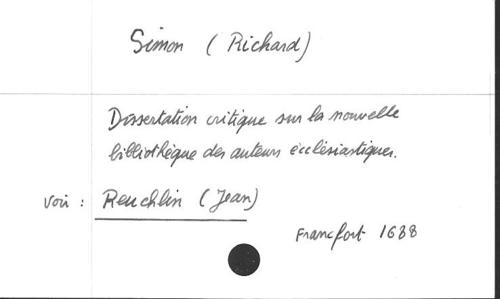 Simon (Richard)
Dissertation critique sur la nouvelle
bibliothèque des auteurs écclésiastiques.
voir : Reuchlin (Jean)
Francfort 1688